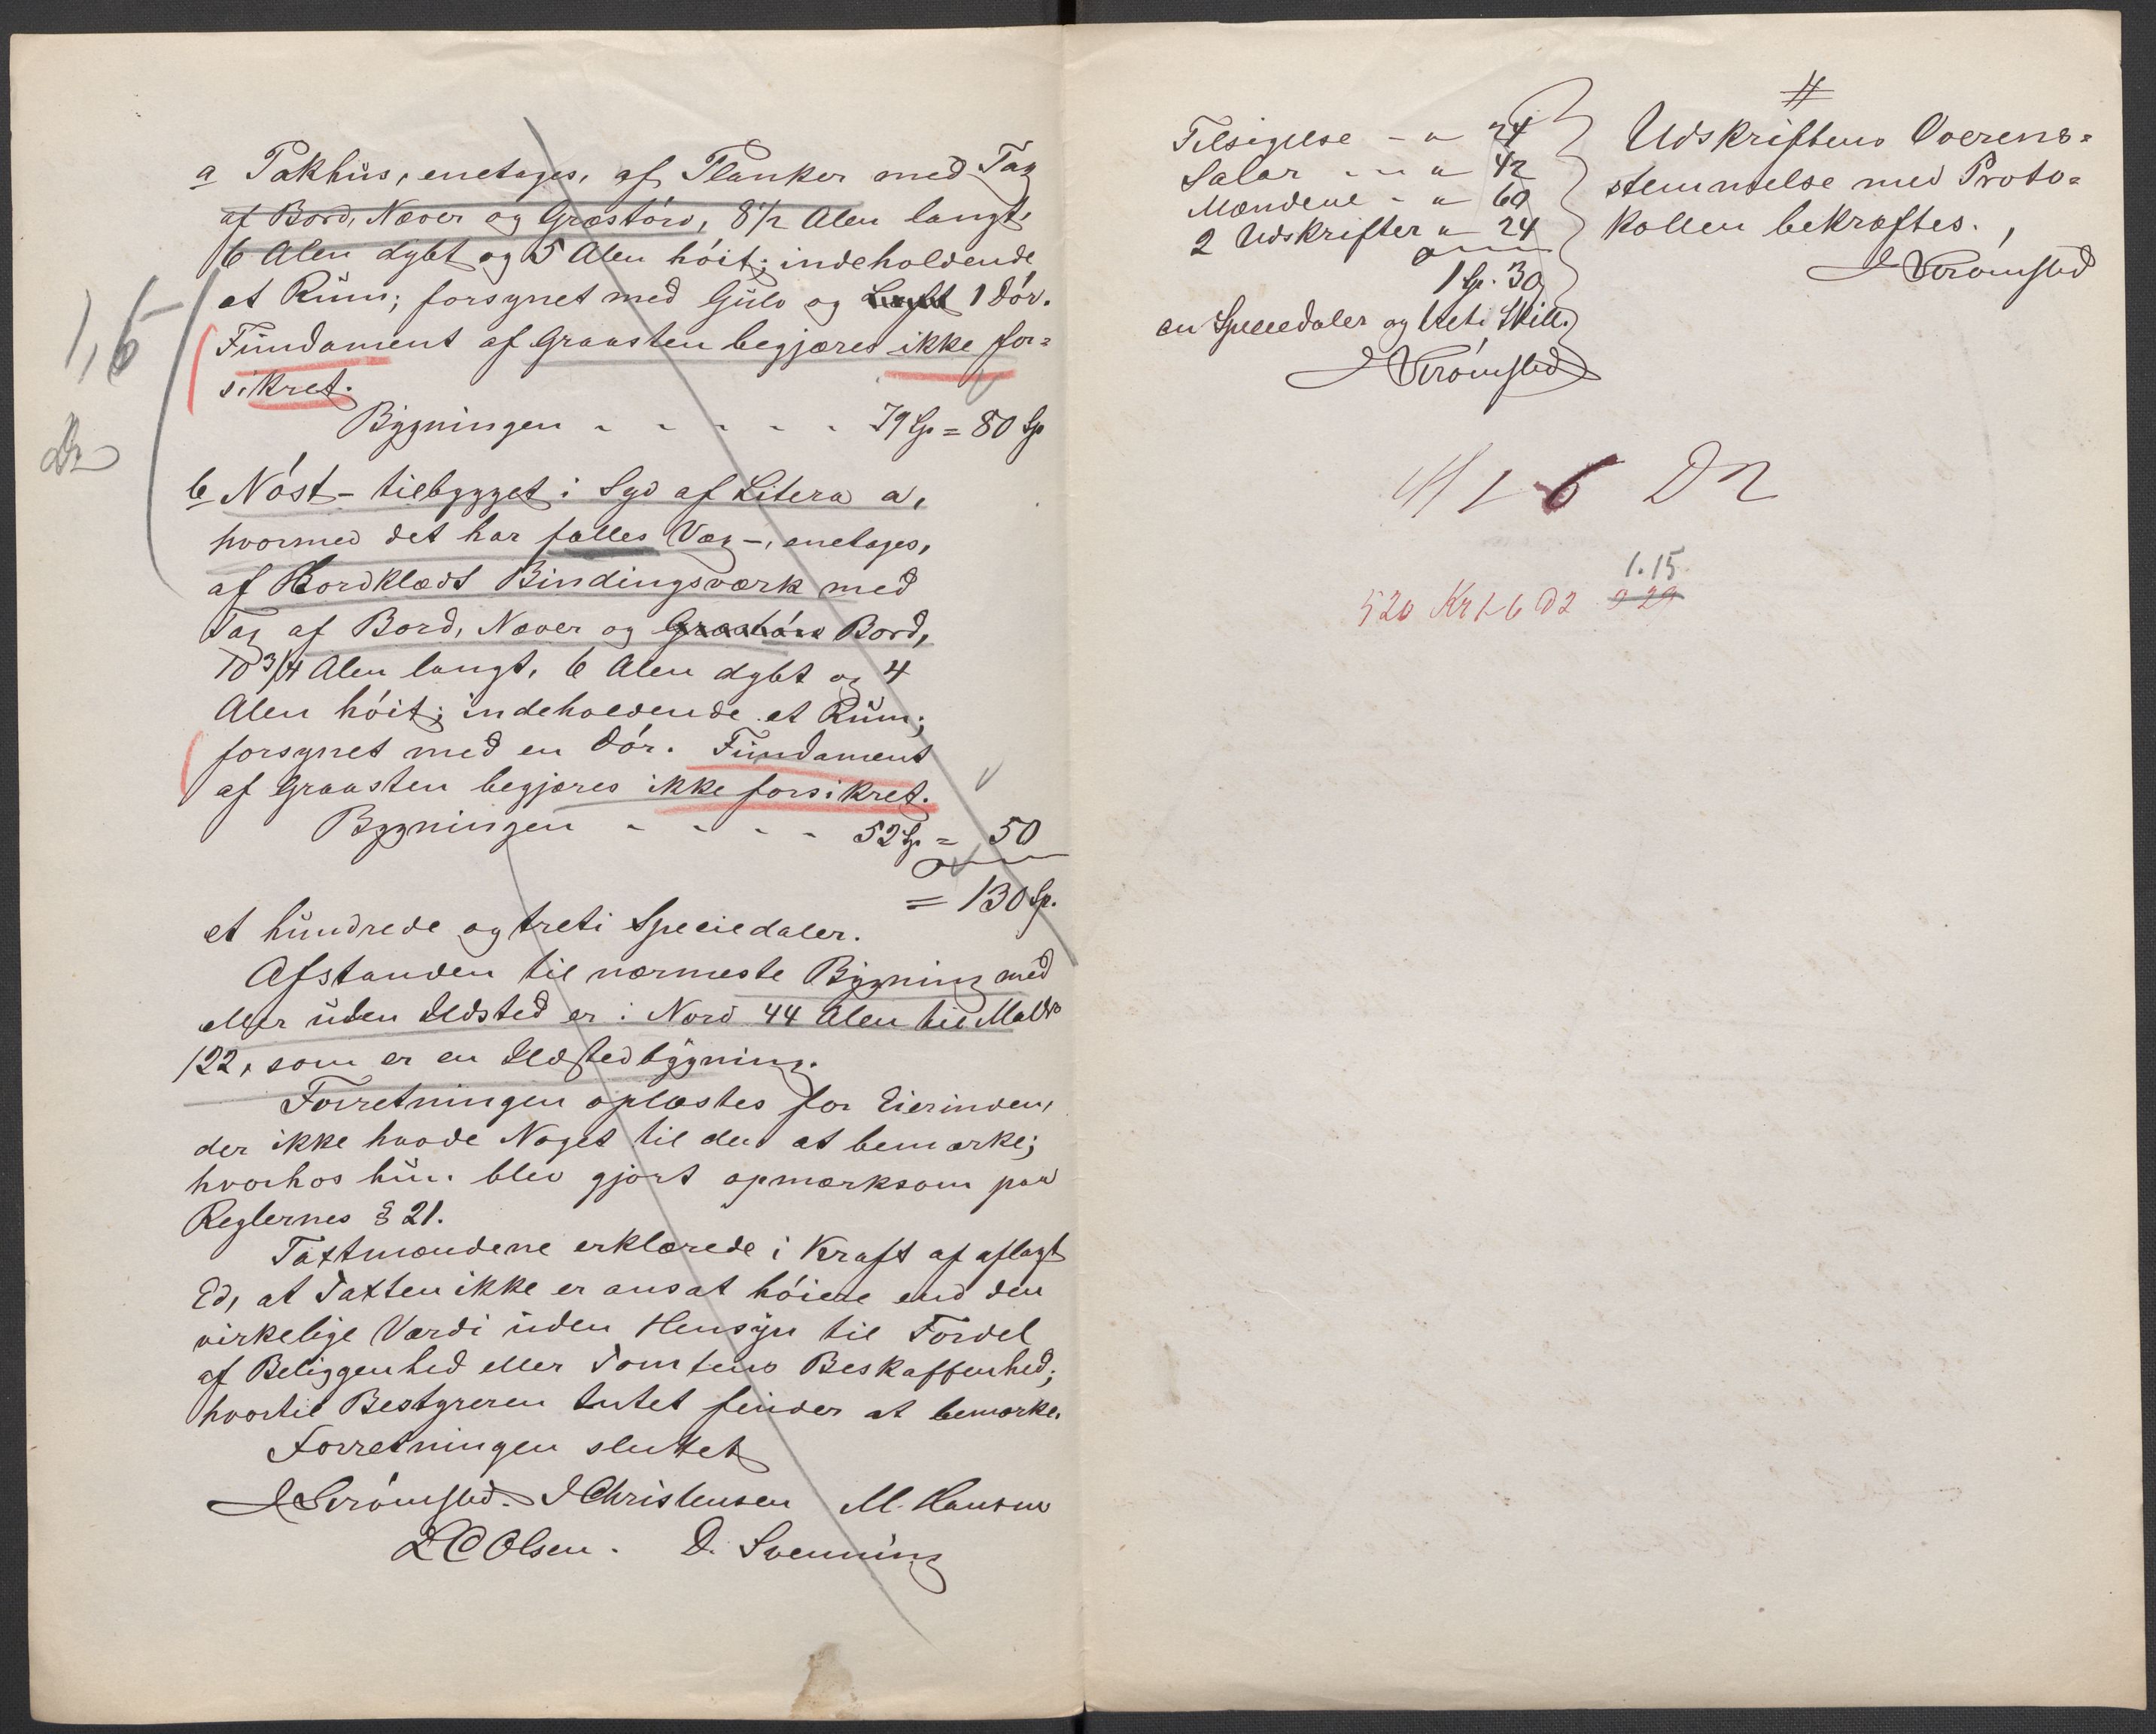 a Pakhus, enetages, af Planker med Tag
af Bord, Næver og Græstörv, 8 1/2 Alen langt,
6 Alen dybt og 5 Alen höit; indeholdende
et Rum; forsynet med Gulv og Loft 1 Dör.
Fundament af Graasten begjæres ikke for=
sikret.
Bygningen - - - - - 79 Sp = 80 Sp
b Nöst - tilbygget i Syd af Litera a,
hvormed det har fælles Væg -, enetages,
af Bordklædt Bindingsværk med
Tag af Bord, Næver og Græstörv Bord,
10 3/4 Alen langt, 6 Alen dybt og 4
Alen höit; indeholdende et Rum;
forsynet med en Dör. Fundament
af Graasten begjæres ikke forsikret.
Bygningen - - - - 52 Sp. = 50
= 130 Sp.
et hundrede og treti Speciedaler.
Afstanden til nærmeste Bygning med
eller uden Ildsted er i Nord 44 Alen til Mat No
122, som er en Ildstedbygning.
Forretningen oplæstes for Eierinden,
der ikke havde Noget til den at bemærke;
hvorhos hun blev gjort opmærksom paa
Reglernes § 21.
Taxtmændene erklærede i Kraft af aflagt
Ed, at Taxten ikke er ansat höiere end den
virkelige Værdi uden Hensyn til Fordel
af Beliggenhed eller Tomtens Beskaffenhed;
hvortil Bestyreren Intet finder at bemærke.
Forretningen sluttet
J Strömsted. J Christensen M. Hansen
L C Olsen. D. Svenning
1,6
D2
Tilsigelse - " 24
Salær - - " 42
Mændene - " 60
2 Udskrifter " 24
1 Sp. 30
en Speciedaler og treti Skill.
J Strömsted
#
Udskriftens Overens=
stemmelse med Proto=
kollen bekræftes.
J Strömsted
1-6 D2
1.15
520 Kr 1-6 D2